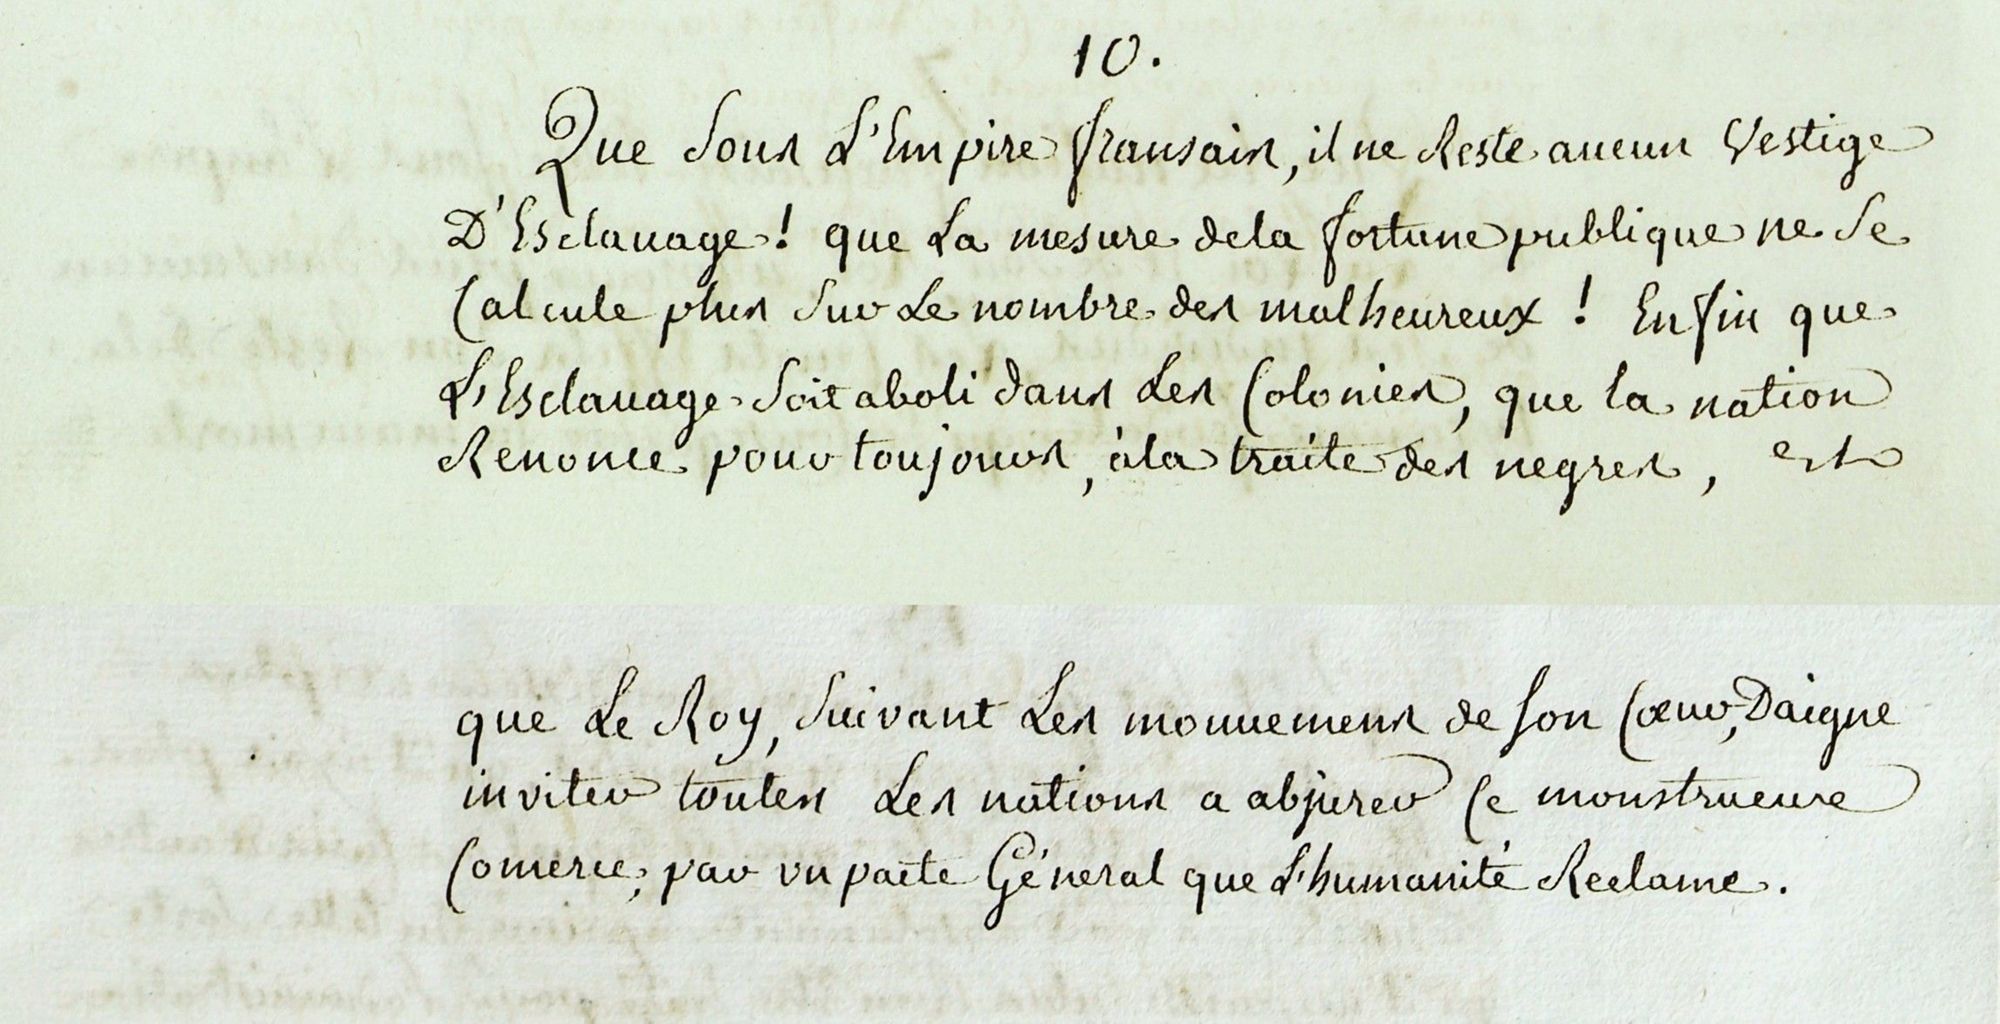 10.
Que Sous L'Empire fransais, il ne Reste aucun Vestige
D'Esclavage! que La mesure dela fortune publique ne Se
Calcule plus Sur Le nombre des malheureux! Enfin que
L'Esclavage Soit aboli dans Les Colonies, que la nation
Renonce pour toujours, àla traite des negres, et
que Le Roy, Suivant Les mouvemens de son Cœur, Daigne
inviter toutes Les nations a abjurer Ce monstrueuxe
Comerce, par un pacte Général que L'humanité Reclame.